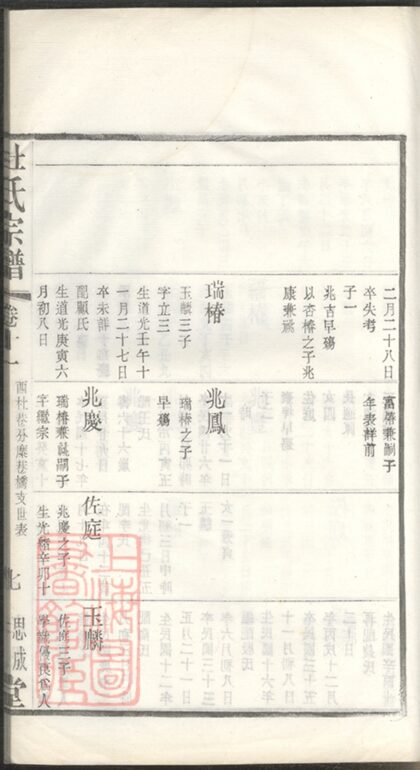 二月二十八日
卒失考
子一
兆吉早殤
以杏椿之子兆
康兼祧
瑞椿
玉麟三子
字立三
生道光壬午十
一月二十七日
卒未詳
配顧氏
生道光庚寅六
月初八日
富椿兼嗣子
年表詳前
兆鳳
瑞椿之子
早殤
兆慶
瑞椿兼祧嗣子
字繼宗
佐庭
兆慶之子
生光緒辛卯十
玉麟
佐庭三子
學識優良爲人
杜氏宗譜
卷十一
酉杜 分 巷橋支世表
七
思成堂
上海圖書館藏